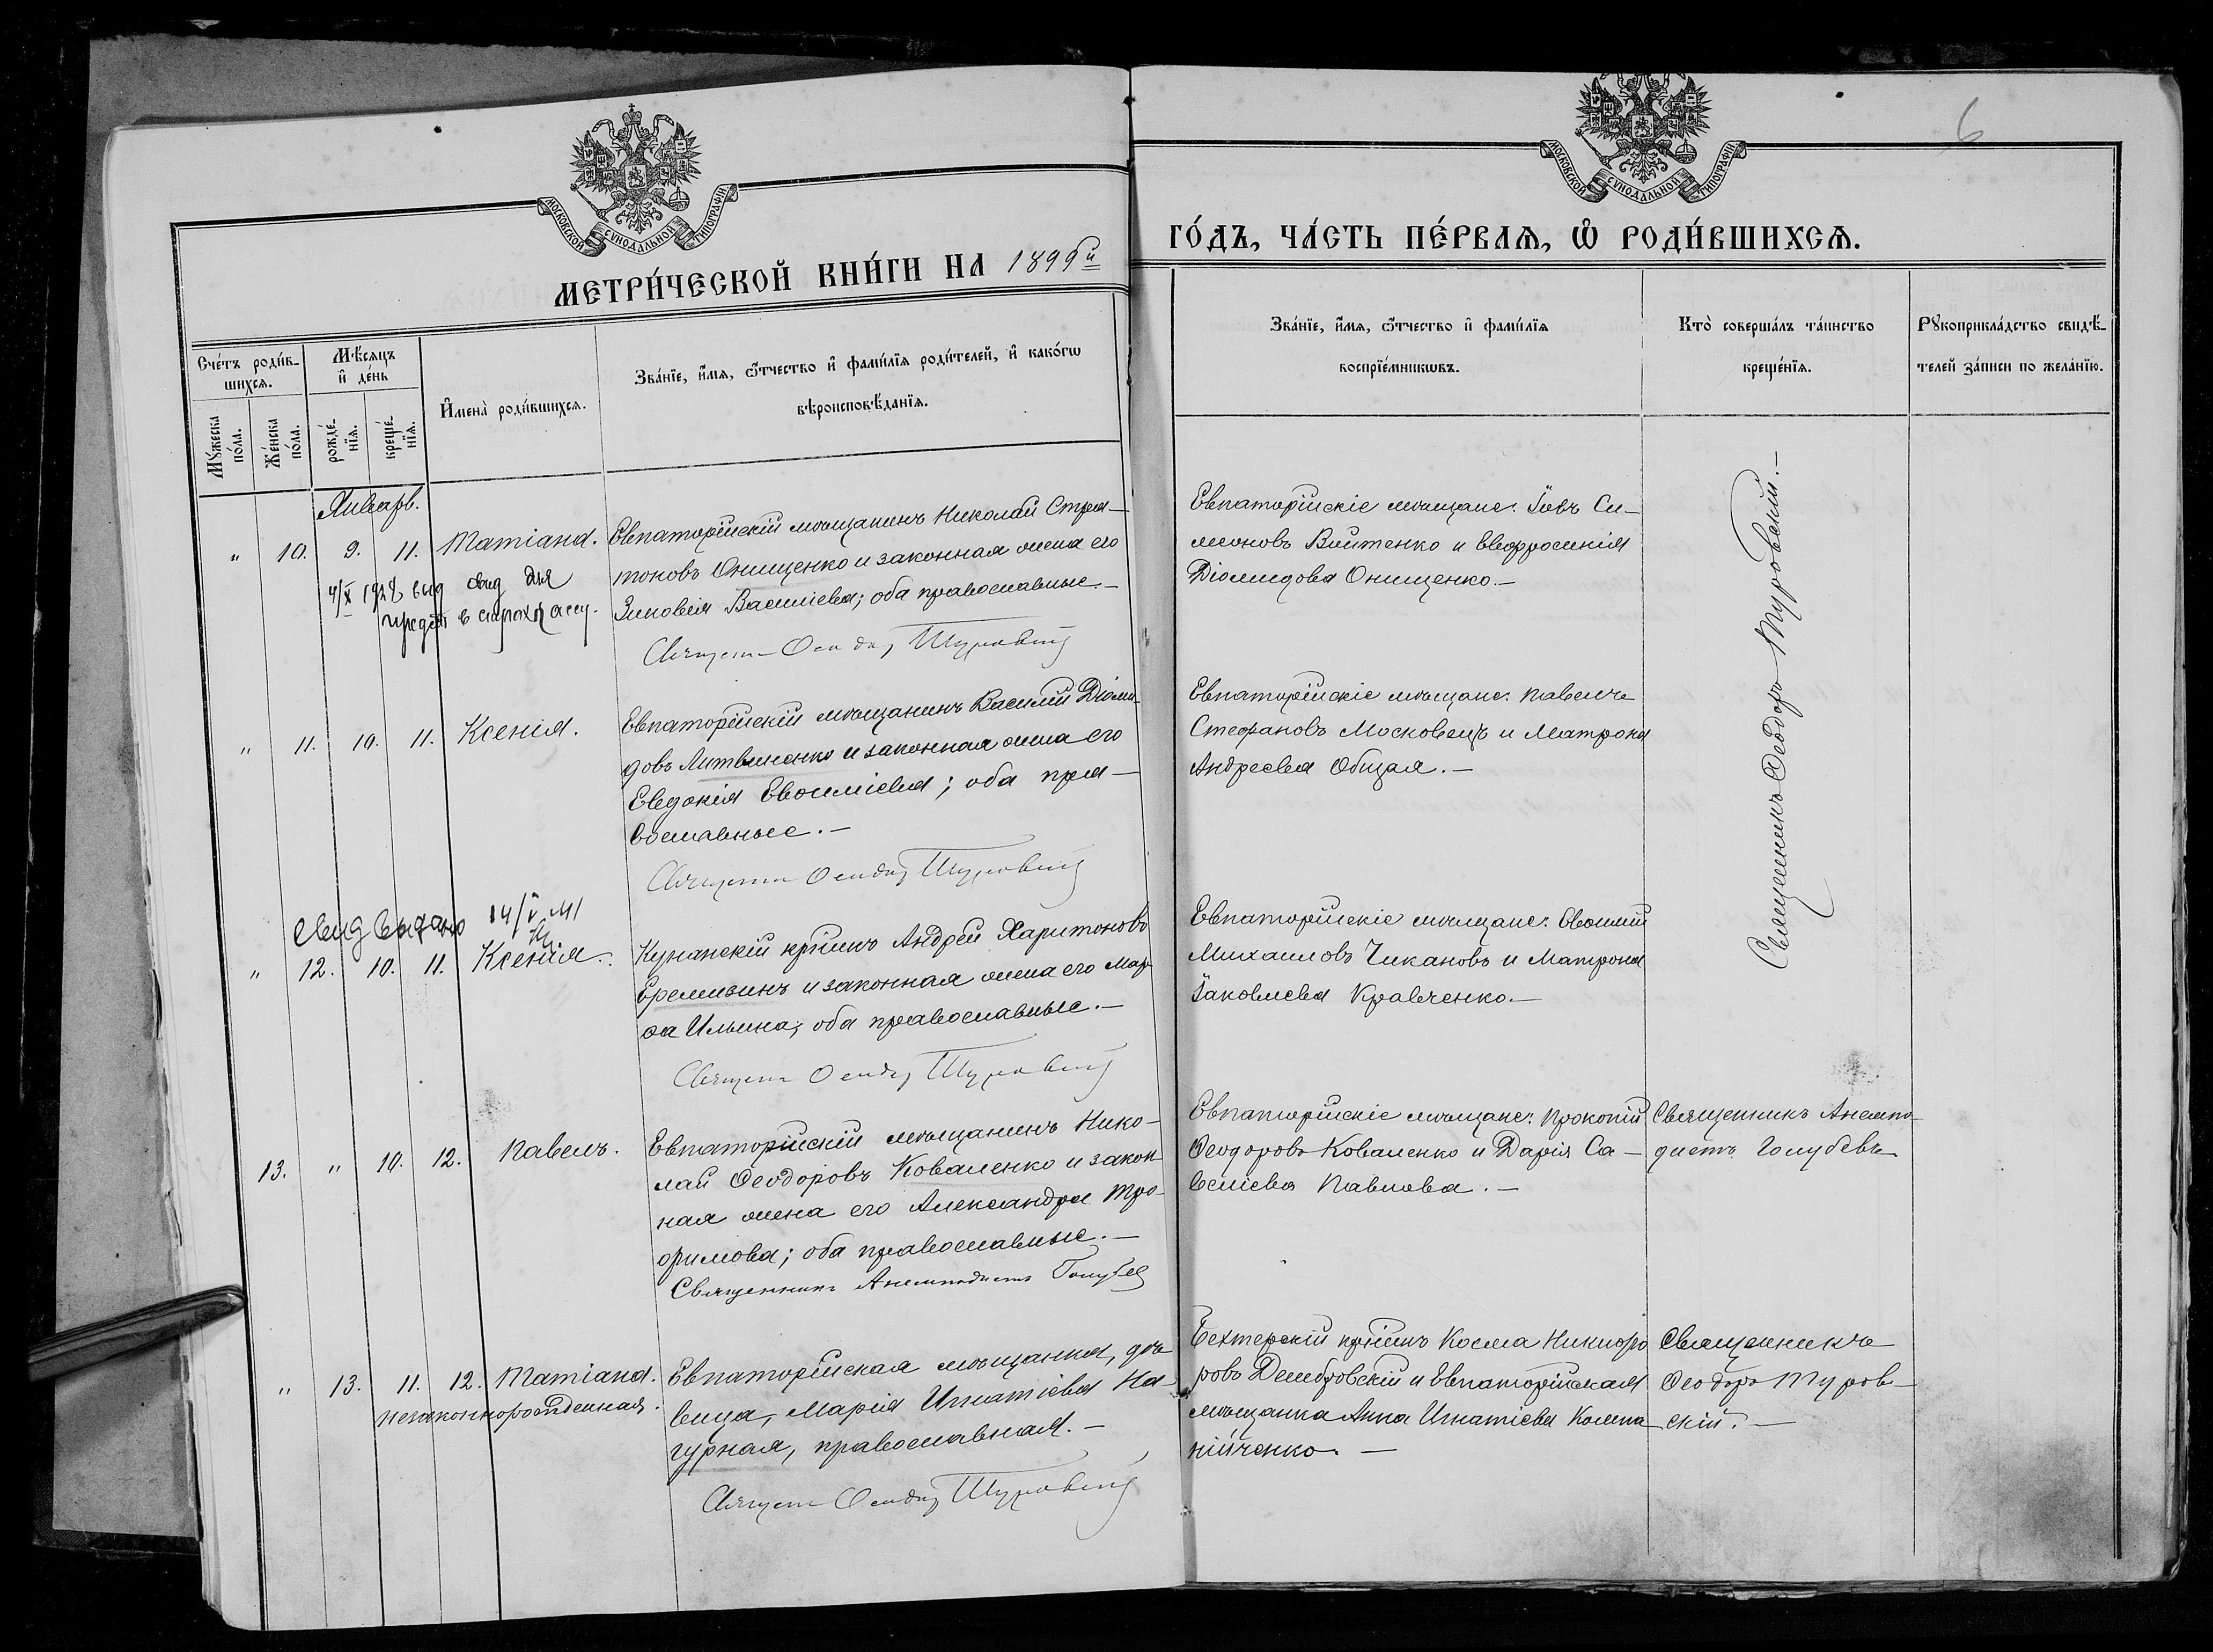 6
МОСКОВСКОЙ СѴНОДАЛЬНОЙ ТИПОГРАФІИ
МОСКОВСКОЙ СѴНОДАЛЬНОЙ ТИПОГРАФІИ
МЕТРИ́ЧЕСКОЙ КНИ́ГИ НА 1899й
ГО́ДЪ, ЧА́СТЬ ПЕ́РВАѦ, Ѡ҆ РОДИ́ВШИХСѦ.
Сче́тъ роди́в-
шихсѧ.
Мꙋ́жеска
по́ла.
Же́нска
по́ла.
Мѣ́сѧцъ
и҆ де́нь
рожде́-
нїѧ.
креще́-
нїѧ.
И҆мена̀ роди́вшихсѧ.
Зва́нїе, и҆́мѧ, ѻ҆́тчество и҆ фами́лїѧ роди́телей, и҆ како́гѡ
вѣроисповѣ́данїѧ.
Зва́нїе, и҆́мѧ, ѻ҆́тчество и҆ фами́лїѧ
воспрїе́мникѡвъ.
Кто̀ соверша́лъ та́инство
креще́нїѧ.
Рꙋкоприкла́дство свидѣ́-
телей за́писи по жела́нїю.
Январь.
" 10. 9. 11. Татіана.
4/X 1928 выд свид для
в
Евпаторійскій мѣщанинъ Николай Стра-
тоновъ Онищенко и законная жена его
Зиновія Василіева; оба православные.-
Священ Ѳеодор Туровскій
Евпаторійскіе мѣщане: Іовъ Си-
меоновъ Войтенко и Евфросинія
Діомидова Онищенко.-
Священникъ Ѳеодоръ Туровскій.-
" 11. 10. 11. Ксенія.
Евпаторійскій мѣщанинъ Василій Діоми-
довъ Литвиненко и законная жена его
Евдокія Евѳиміева; оба пра-
вославные.-
Священн Ѳеодор Туровскій
Евпаторійскіе мѣщане: Павелъ
Стефановъ Московецъ и Матрона
Андреева Общая.-
свид выдано 14/V 41
" 12. 10. 11. Ксенія.
крѣшнъ Андрей Харитоновъ
Еремизинъ и законная жена его Мар-
ѳа Ильина; оба православные.-
Священ Ѳеодор Туровскій
Евпаторійскіе мѣщане: Евѳимій
Михаиловъ Чикановъ и Матрона
Іаковлева Кравченко.-
13. " 10. 12. Павелъ.
Евпаторійскій мѣщанинъ Нико-
лай Ѳеодоровъ Коваленко и закон-
ная жена его Александра Тро-
фимова; оба православные.-
Священникъ Анемподистъ Голубев
Евпаторійскіе мѣщане: Прокопій
Ѳеодоровъ Коваленко и Дарія Са-
веліева Павлова.-
Священникъ Анемпо-
дистъ Голубевъ
" 13. 11. 12. Татіана.
незаконнорожденная.
Евпаторійская мѣщанка, дѣ-
вица, Марія Игнатіева На-
гурная, православная.-
Священ Ѳеодор Туровскій
Бехтерскій крѣшнъ Косма Никифо-
ровъ Домбровскій и Евпаторійская
мѣщанка Анна Игнатіева Компа-
нійченко.-
Священникъ
Ѳеодоръ Туров-
скій.-